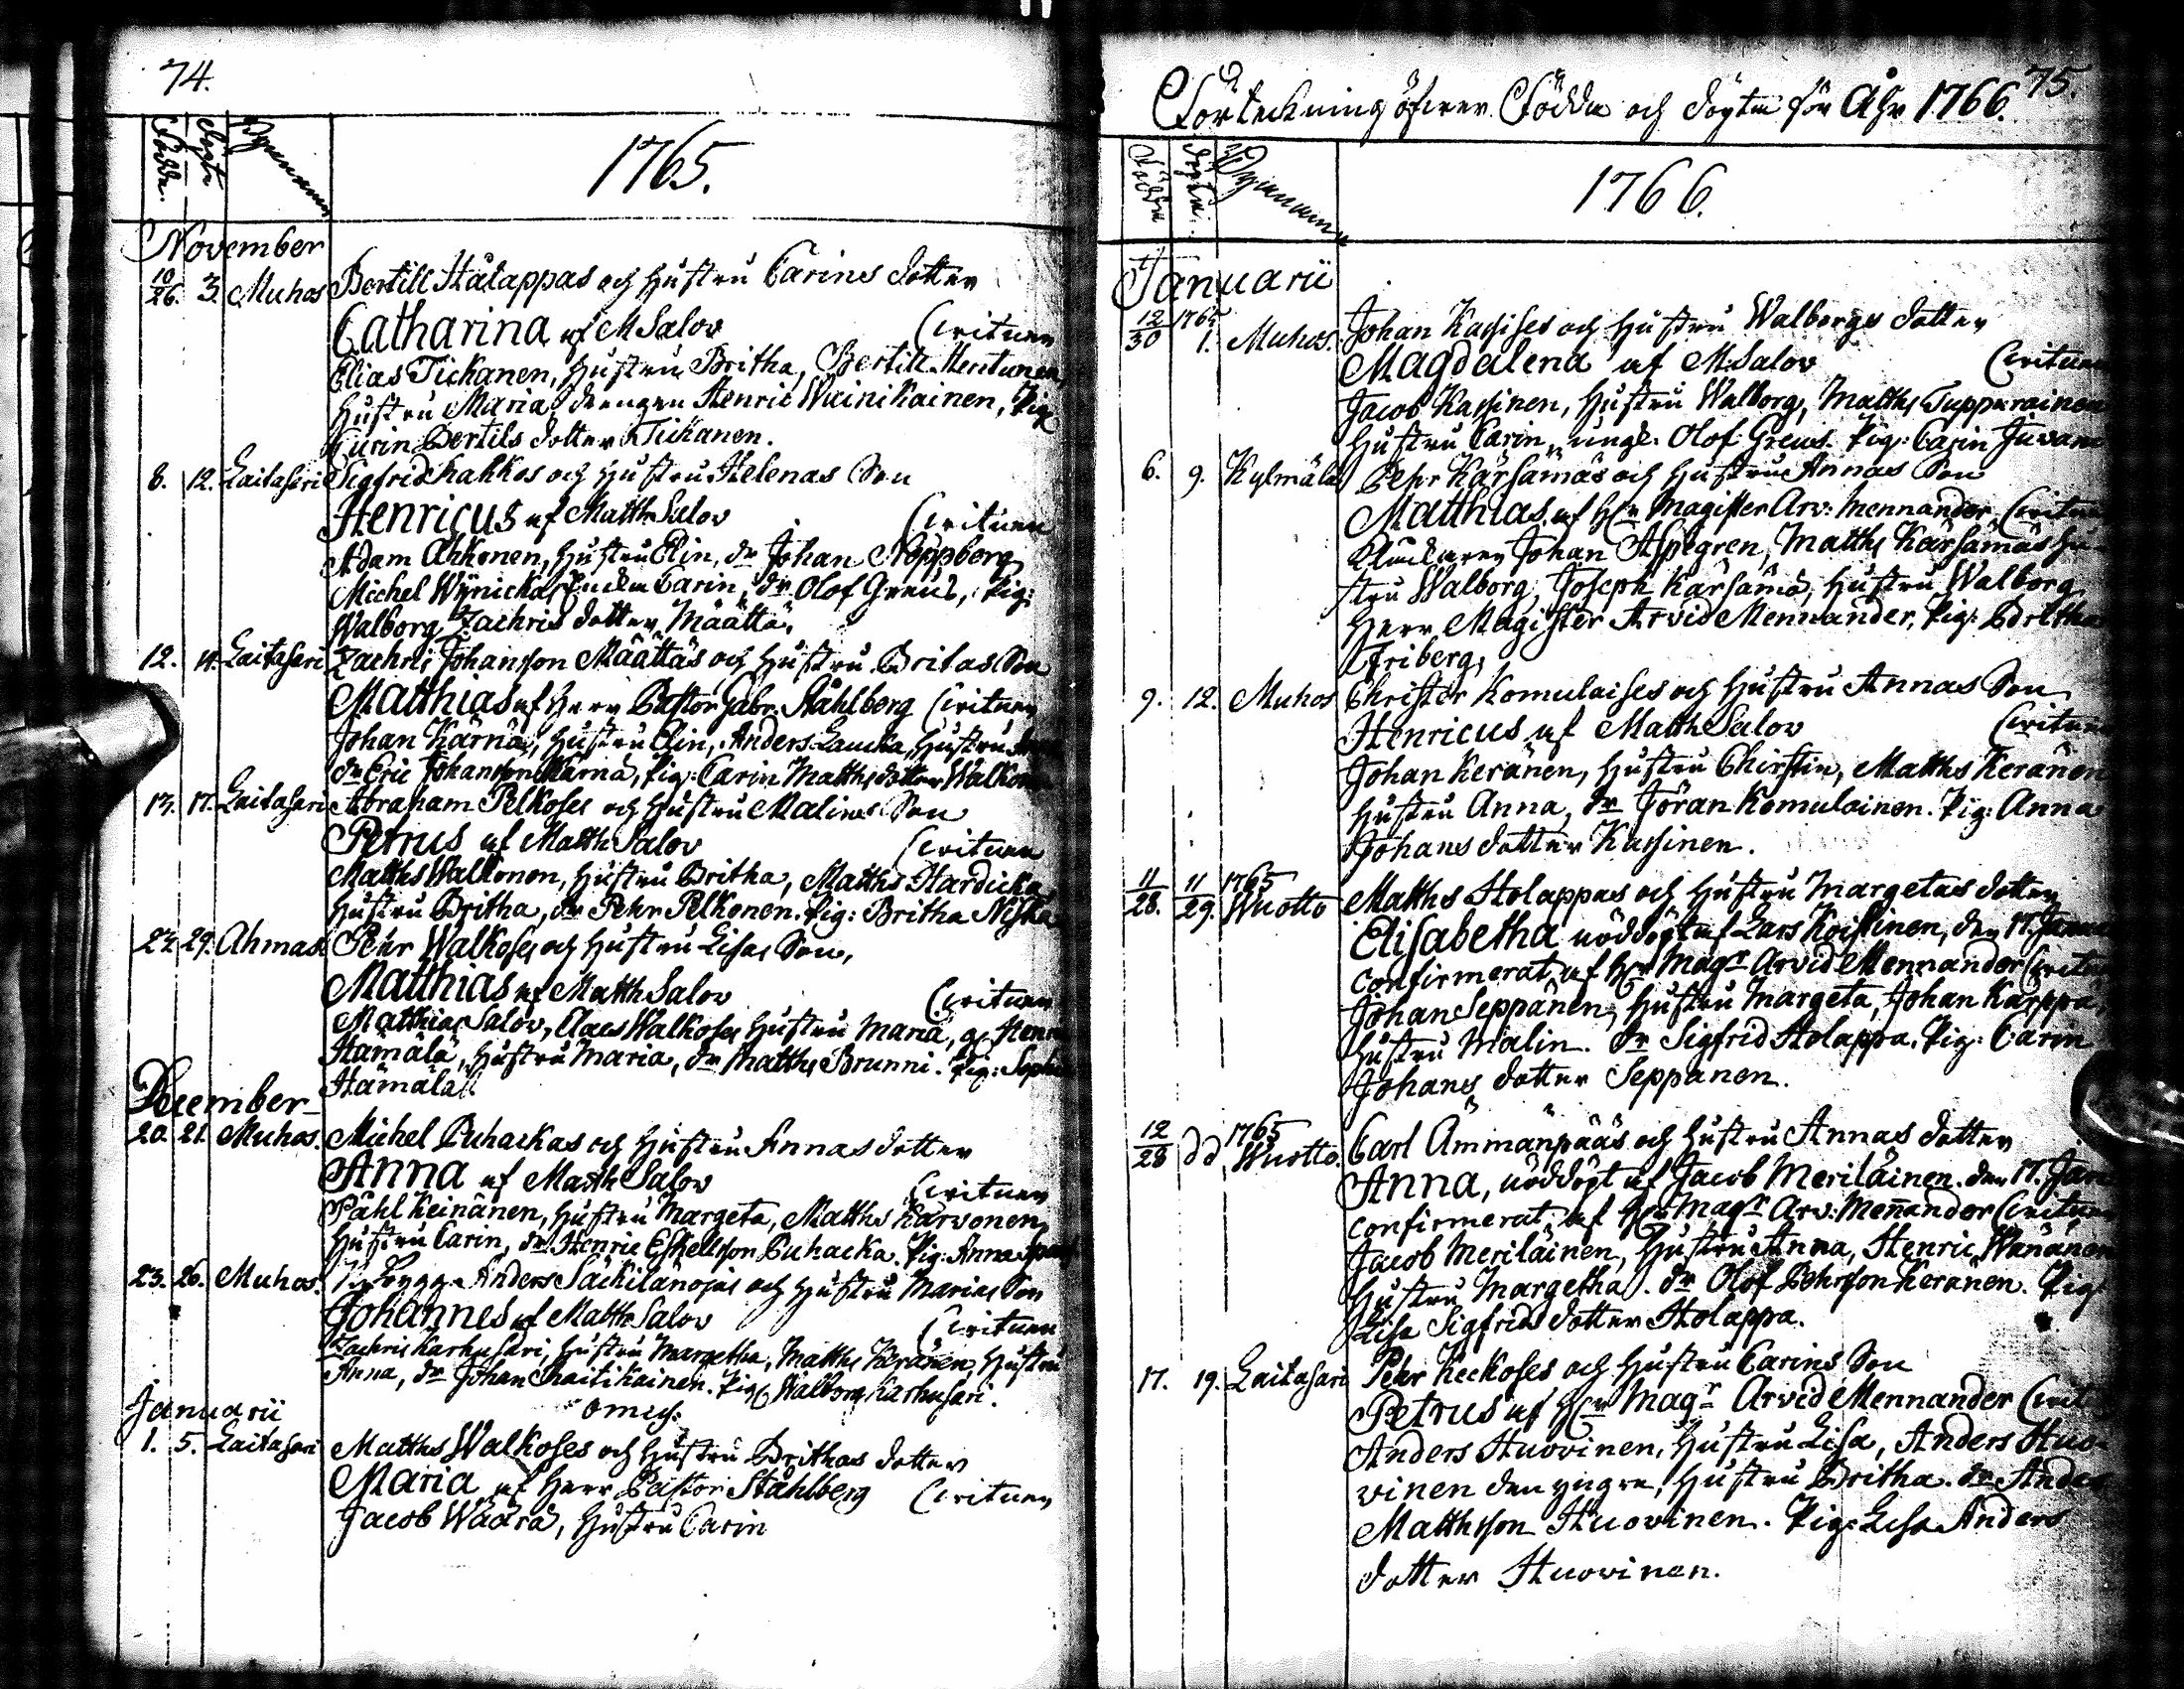 74.
Födde. Döpte Byarnamn
1765.
November
10/26. 3. Muhos Bertill Hålappas och hustru Carins dotter
Catharina af M Salov Crituen
Elias Tickanen, hustru Britha, Bertill Heictunen
hustru Maria, drengen Henric Wäinikainen, Pig:
Carin Bertils dotter Tickanen.
8. 12. Laitasari Sigfrid hahkos och hustru Helenas Son
Henricus af Matth Salov Crituen
Adam Ahkonen, hustru Elin, dr Johan Noppberg
Michel Wÿnicka, Enckn Carin, dr Olof Greus, Pig:
Walborg Zachris dotter Määttä.
12. 14. Laitasari Zachris Johansson Määttäs och hustru Britas Son
Matthias af Herr Pastor Gabr. Ståhlberg Crituen
Johan Kärnä, hustru Elin, Anders Laucka, hustru
dr Eric Johansson Kärnä, Pig: Carin Matths dotter Walkonen
13. 17. Laitasari Abraham Pelkoses och hustru Malins Son
Petrus af Matth Salov Crituen
Matths Walkonen, hustru Britha, Matths Hardicka
hustru Britha, dr Pehr Pelkonen. Pig: Britha Niska
27. 29. Ahmas Pehr Walkoses och hustru Lisas Son,
Matthias af Matth Salov Crituen
Matthias Salov, Claes Walkoses hustru Maria,
Hämälä, hustru Maria, dr Matths Brunni. Pig: Sophia
Hämälä.
December
20. 21. Muhos. Michel Puhackas och hustru Annas dotter
Anna af Matth Salov Crituen
Påhl Keinänen, hustru Margeta, Matths Karvonen,
hustru Carin, dr Henric Eskellsson Puhacka. Pig: Anna
23. 26. Muhos. Nybygg. Anders Säckilänojas och hustru Marias Son
Johannes af Matth Salov Crituen
Zachris Karhusari, hustru Margetha, Matths Keränen, hustru
Anna, dr Johan Raitikainen. Pig: Walborg Karhusari.
Januarii
1. 5. Laitasari Matths Walkoses och hustru Brithas dotter
Maria af Herr Pastor Ståhlberg Crituen
Jacob Wäärä, hustru Carin
75.
Förteckning öfwer Födda och döpta för Åhr 1766.
Födda döpta. Byanamn
1766.
Januarii
12/30 1765 1. Muhos. Johan Kassises och hustru Walborgs dotter
Magdalena af M Salov Crituen
Jacob Kassinen, hustru Walborg, Matths Tuppurainen
hustru Carin, ungk: Olof Greus. Pig: Carin Juvani
6. 9. Kylmälä Pehr Kärsämäs och hustru Annas Son
Matthias af Hr Magister Arv: Mennander Crituen
Klockaren Johan Aspegren, Matths Kärsämäs hu-
stru Walborg, Joseph Kärsämä, hustru Walborg
Herr Magister Arvid Mennander, Pig: Britha
Friberg,
9. 12. Muhos Christer Komulaises och hustru Annas Son
Henricus af Matth Salov Crituen
Johan Keränen, hustru Chirstin, Matths Keränen
hustru Anna, dr Jöran Komulainen. Pig: Anna
Johans dotter Kassinen.
11/28. 11/29. 1765 Wuotto Matths Holappas och hustru Margetas dotter
Elisabetha nöddöpt af Lars Koistinen, den 17. Janu
confirmerat af Hr Magr Arvid Mennander Crituen
Johan Seppänen, hustru Margeta, Johan Karppa,
hustru Malin. dr Sigfrid Holappa. Pig: Carin
Johans dotter Seppänen.
12/28 dd 1765 Wuotto. Carl Ämmänpääs och hustru Annas dotter
Anna, nöddöpt af Jacob Meriläinen. den 17. Jan
confirmerat, af Hr Magr Arv: Mennander Crituen
Jacob Meriläinen, hustru Anna, Henric Wänänen
hustru Margetha. dr Olof Pehrsson Keränen. Pig:
Lisa Sigfrids dotter Holappa.
17. 19. Laitasari Pehr Keckoses och hustru Carins Son
Petrus af Hr Magr Arvid Mennander Crit
Anders Huovinen, hustru Lisa, Anders Huo-
vinen den yngre, hustru Britha. dr Anders
Matthsson Huovinen. Pig: Lisa Anders
dotter Huovinen.